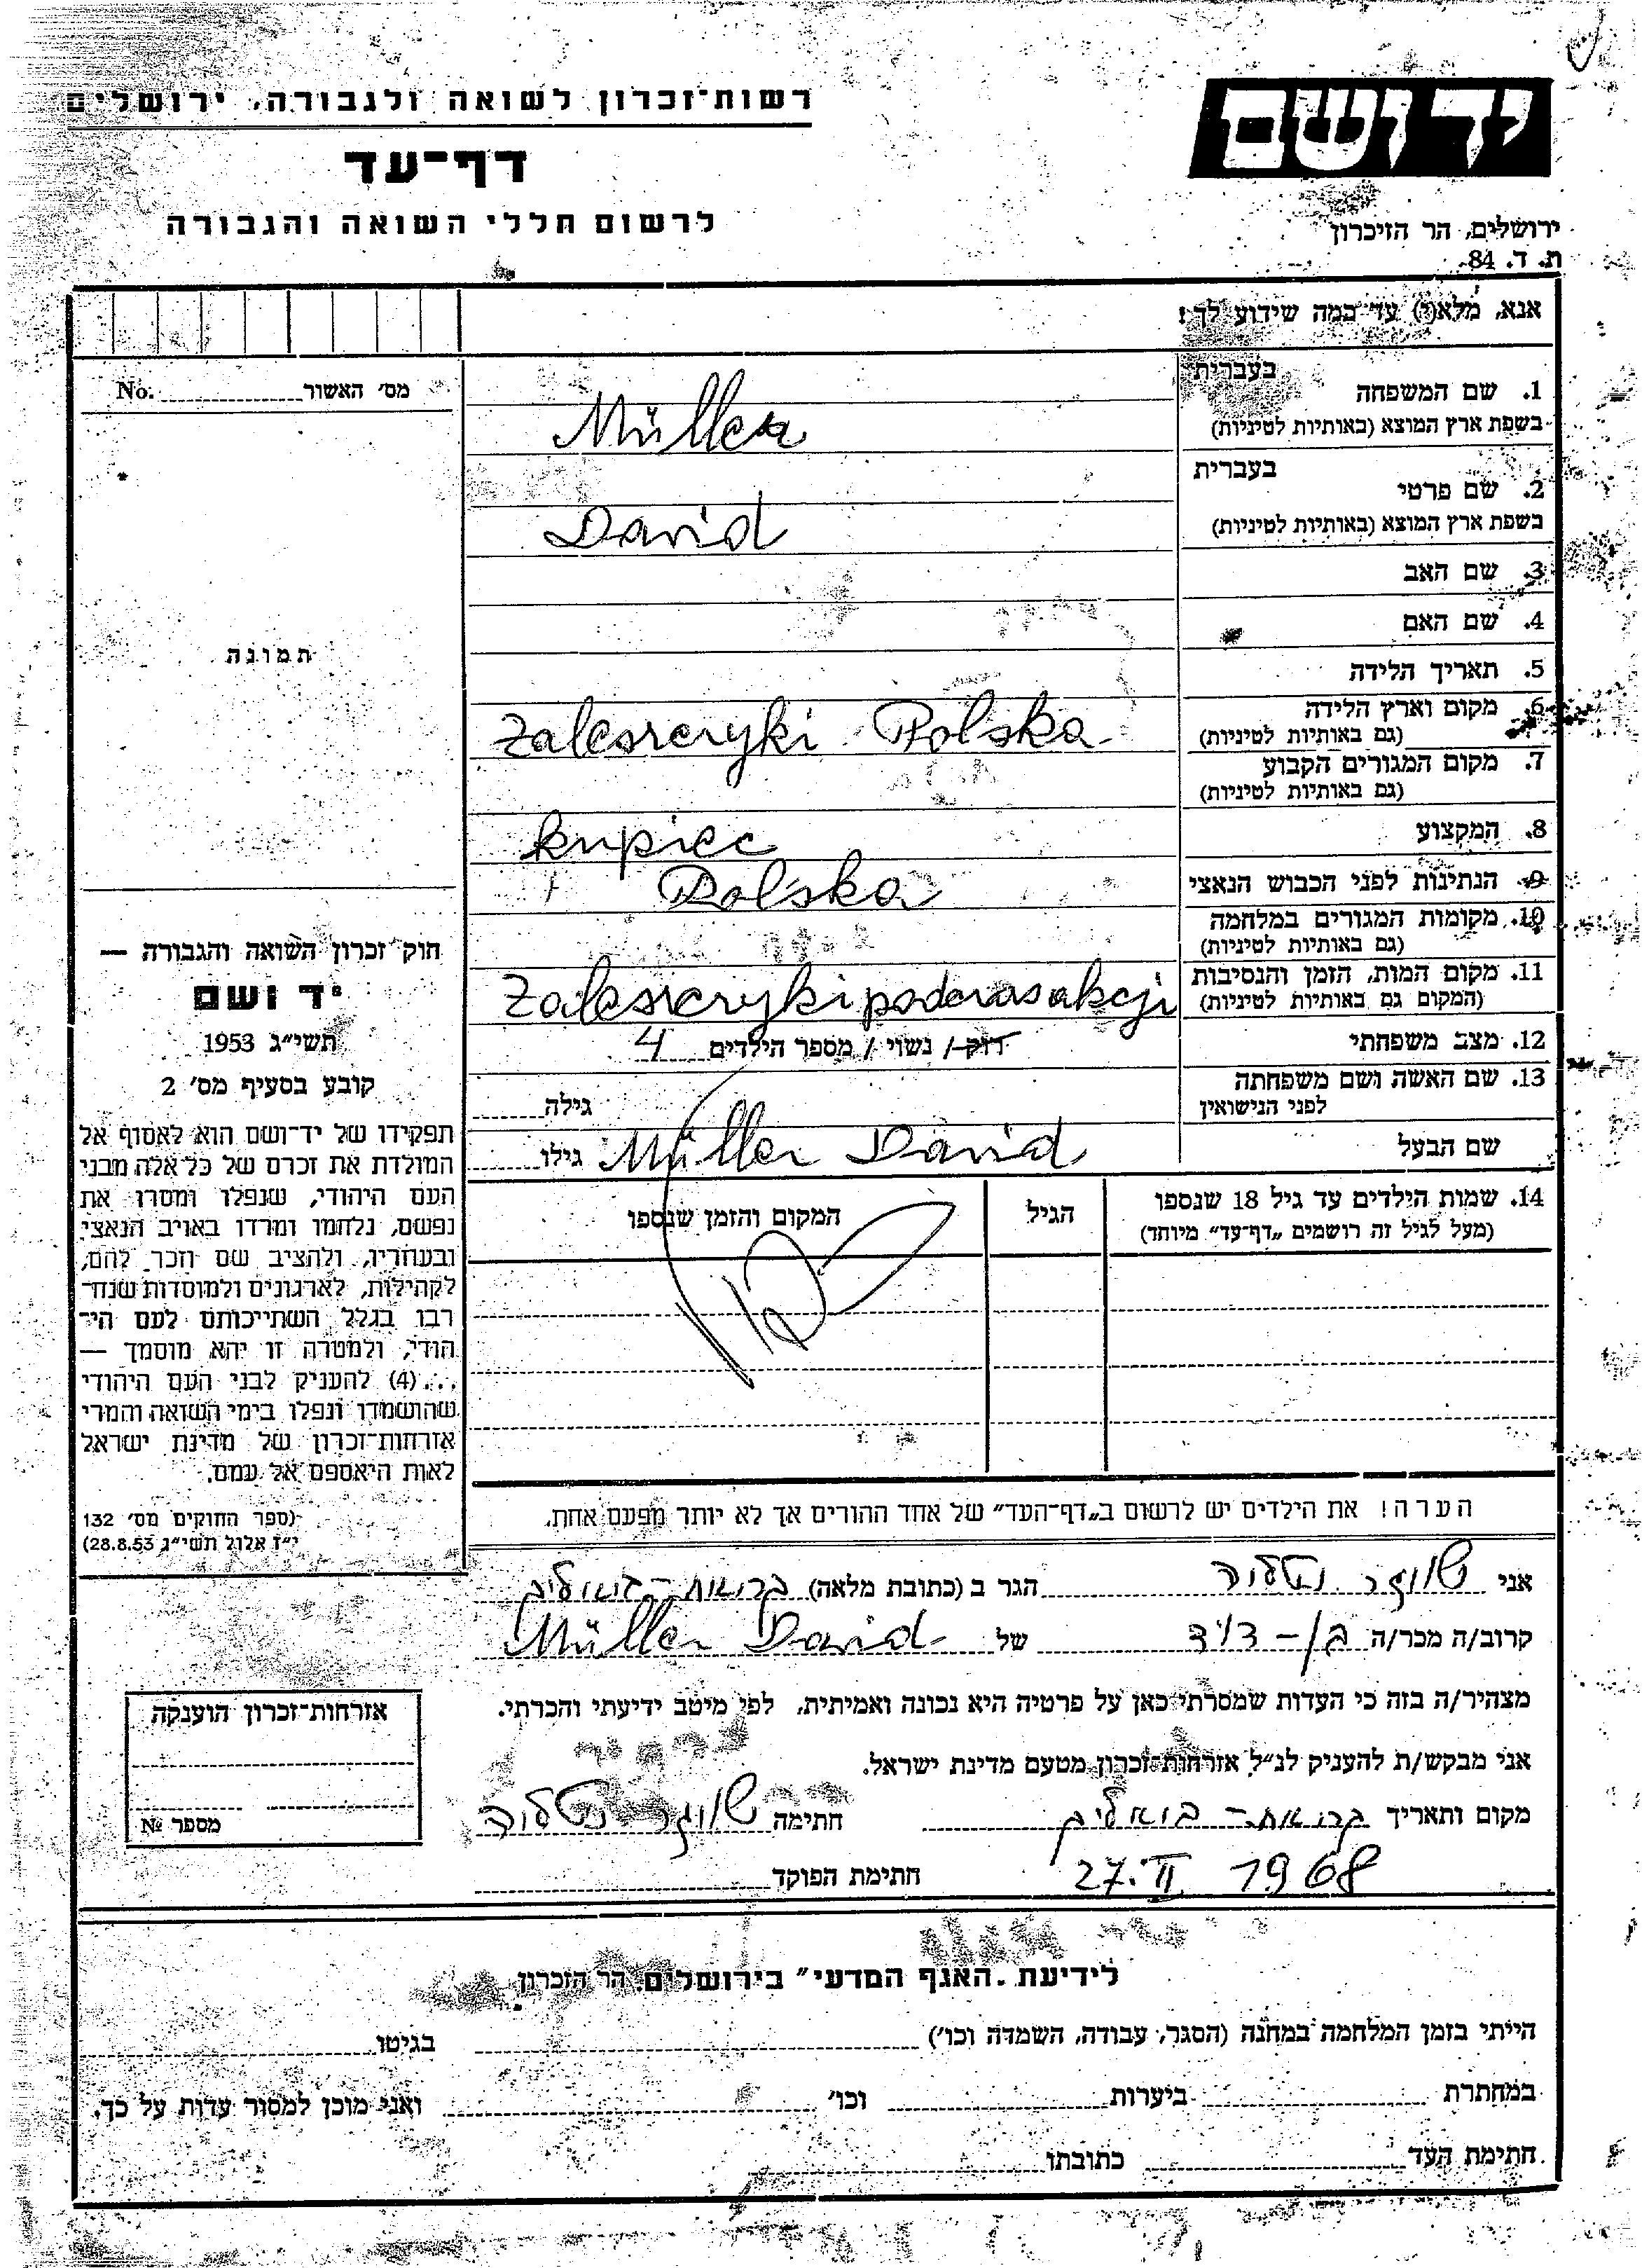 רשות־זכרון לשואה ולגבורה, ירושלים
יד ושם
דף־עד
לרשום חללי השואה והגבורה
ירושלים, הר הזיכרון
ת. ד. 84
אנא, מלא(י) עד כמה שידוע לך!
מס׳ האשור No.
בעברית
1. שם המשפחה
בשפת ארץ המוצא (באותיות לטיניות) Müller
בעברית
2. שם פרטי
בשפת ארץ המוצא (באותיות לטיניות) David
3. שם האב
4. שם האם
תמונה
5. תאריך הלידה
6. מקום וארץ הלידה
(גם באותיות לטיניות) Zaleszczyki Polska
7. מקום המגורים הקבוע
(גם באותיות לטיניות)
8. המקצוע kupiec
9. הנתינות לפני הכבוש הנאצי Polska
10. מקומות המגורים במלחמה
(גם באותיות לטיניות)
11. מקום המות, הזמן והנסיבות
(המקום גם באותיות לטיניות) Zaleszczyki podczas akcji
12. מצב משפחתי רווק / נשוי / מספר הילדים 4
13. שם האשה ושם משפחתה
לפני הנישואין גילה
שם הבעל Müller David גילו
14. שמות הילדים עד גיל 18 שנספו
(מעל לגיל זה רושמים „דף־עד״ מיוחד)
הגיל
המקום והזמן שנספו
חוק זכרון השואה והגבורה —
יד ושם
תשי״ג 1953
קובע בסעיף מס׳ 2
תפקידו של יד־ושם הוא לאסוף אל
המולדת את זכרם של כל אלה מבני
העם היהודי, שנפלו ומסרו את
נפשם, נלחמו ומרדו באויב הנאצי
ובעוזריו, ולהציב שם וזכר להם,
לקהילות, לארגונים ולמוסדות שנח־
רבו בגלל השתייכותם לעם הי־
הודי, ולמטרה זו יהא מוסמך —
...(4) להעניק לבני העם היהודי
שהושמדו ונפלו בימי השואה והמרי
אזרחות־זכרון של מדינת ישראל
לאות היאספם אל עמם.
(ספר החוקים מס׳ 132
י״ז אלול תשי״ג 28.8.53)
הערה! את הילדים יש לרשום ב„דף־העד״ של אחד ההורים אך לא יותר מפעם אחת.
אני הגר ב (כתובת מלאה)
קרוב/ה מכר/ה בן־דוד של Müller David
מצהיר/ה בזה כי העדות שמסרתי כאן על פרטיה היא נכונה ואמיתית, לפי מיטב ידיעתי והכרתי.
אני מבקש/ת להעניק לנ״ל אזרחות־זכרון מטעם מדינת ישראל.
מקום ותאריך חתימה
27.II 1968
חתימת הפוקד
אזרחות־זכרון הוענקה
מספר №
לידיעת „האגף המדעי״ בירושלים, הר הזכרון
הייתי בזמן המלחמה במחנה (הסגר, עבודה, השמדה וכו׳) בגיטו
במחתרת ביערות וכו׳ ואני מוכן למסור עדות על כך.
חתימת העד כתובתו